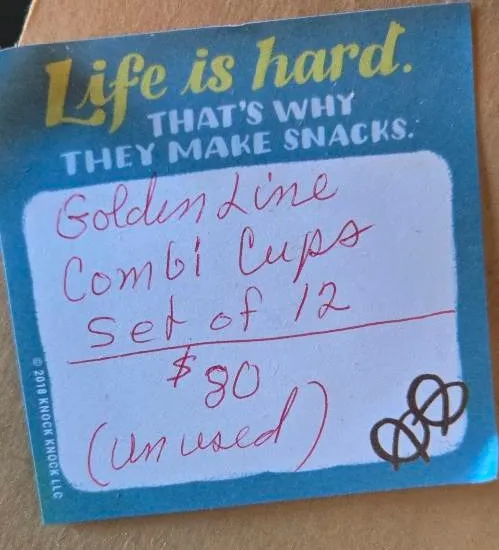 Life is hard.
THAT'S WHY
THEY MAKE SNACKS.
Golden Line
Combi Cups
Set of 12
$80
(unused)
© 2018 KNOCK KNOCK LLC